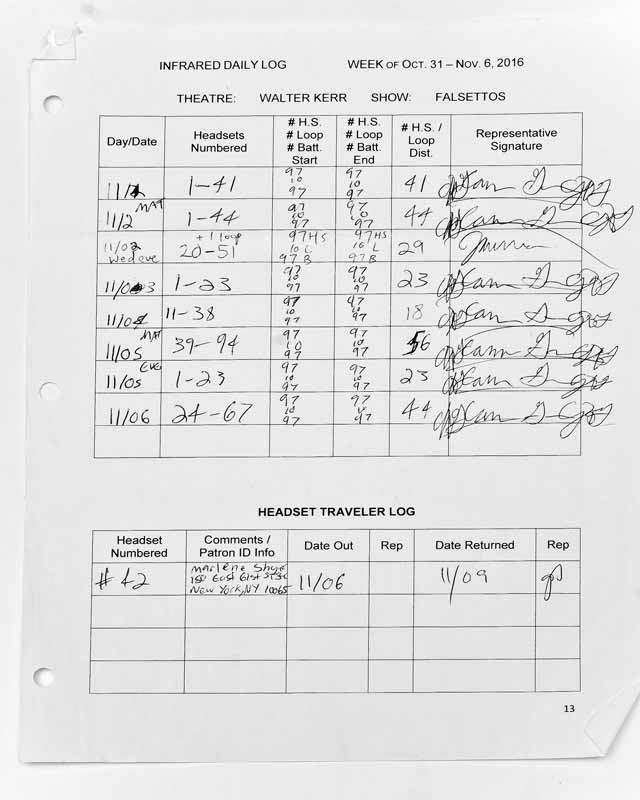 INFRARED DAILY LOG WEEK OF OCT. 31 – NOV. 6, 2016
THEATRE: WALTER KERR SHOW: FALSETTOS
Day/Date Headsets Numbered # H.S. # Loop # Batt. Start # H.S. # Loop # Batt. End # H.S. / Loop Dist. Representative Signature
11/1 1-41 97 10 97 97 10 97 41
11/2 MAT 1-44 97 10 97 97 10 97 44
11/02 Wed eve + 1 loop 20-51 97HS 10 L 97 B 97HS 10 L 97 B 29
11/03 1-23 97 10 97 97 10 97 23
11/04 11-38 97 10 97 97 10 97 18
11/05 MAT 39-94 97 10 97 97 10 97 56
11/05 EVE 1-23 97 10 97 97 10 97 23
11/06 24-67 97 10 97 97 10 97 44
HEADSET TRAVELER LOG
Headset Numbered Comments / Patron ID Info Date Out Rep Date Returned Rep
# 42 Marlene East 61st New York, NY 10065 11/06 11/09
13